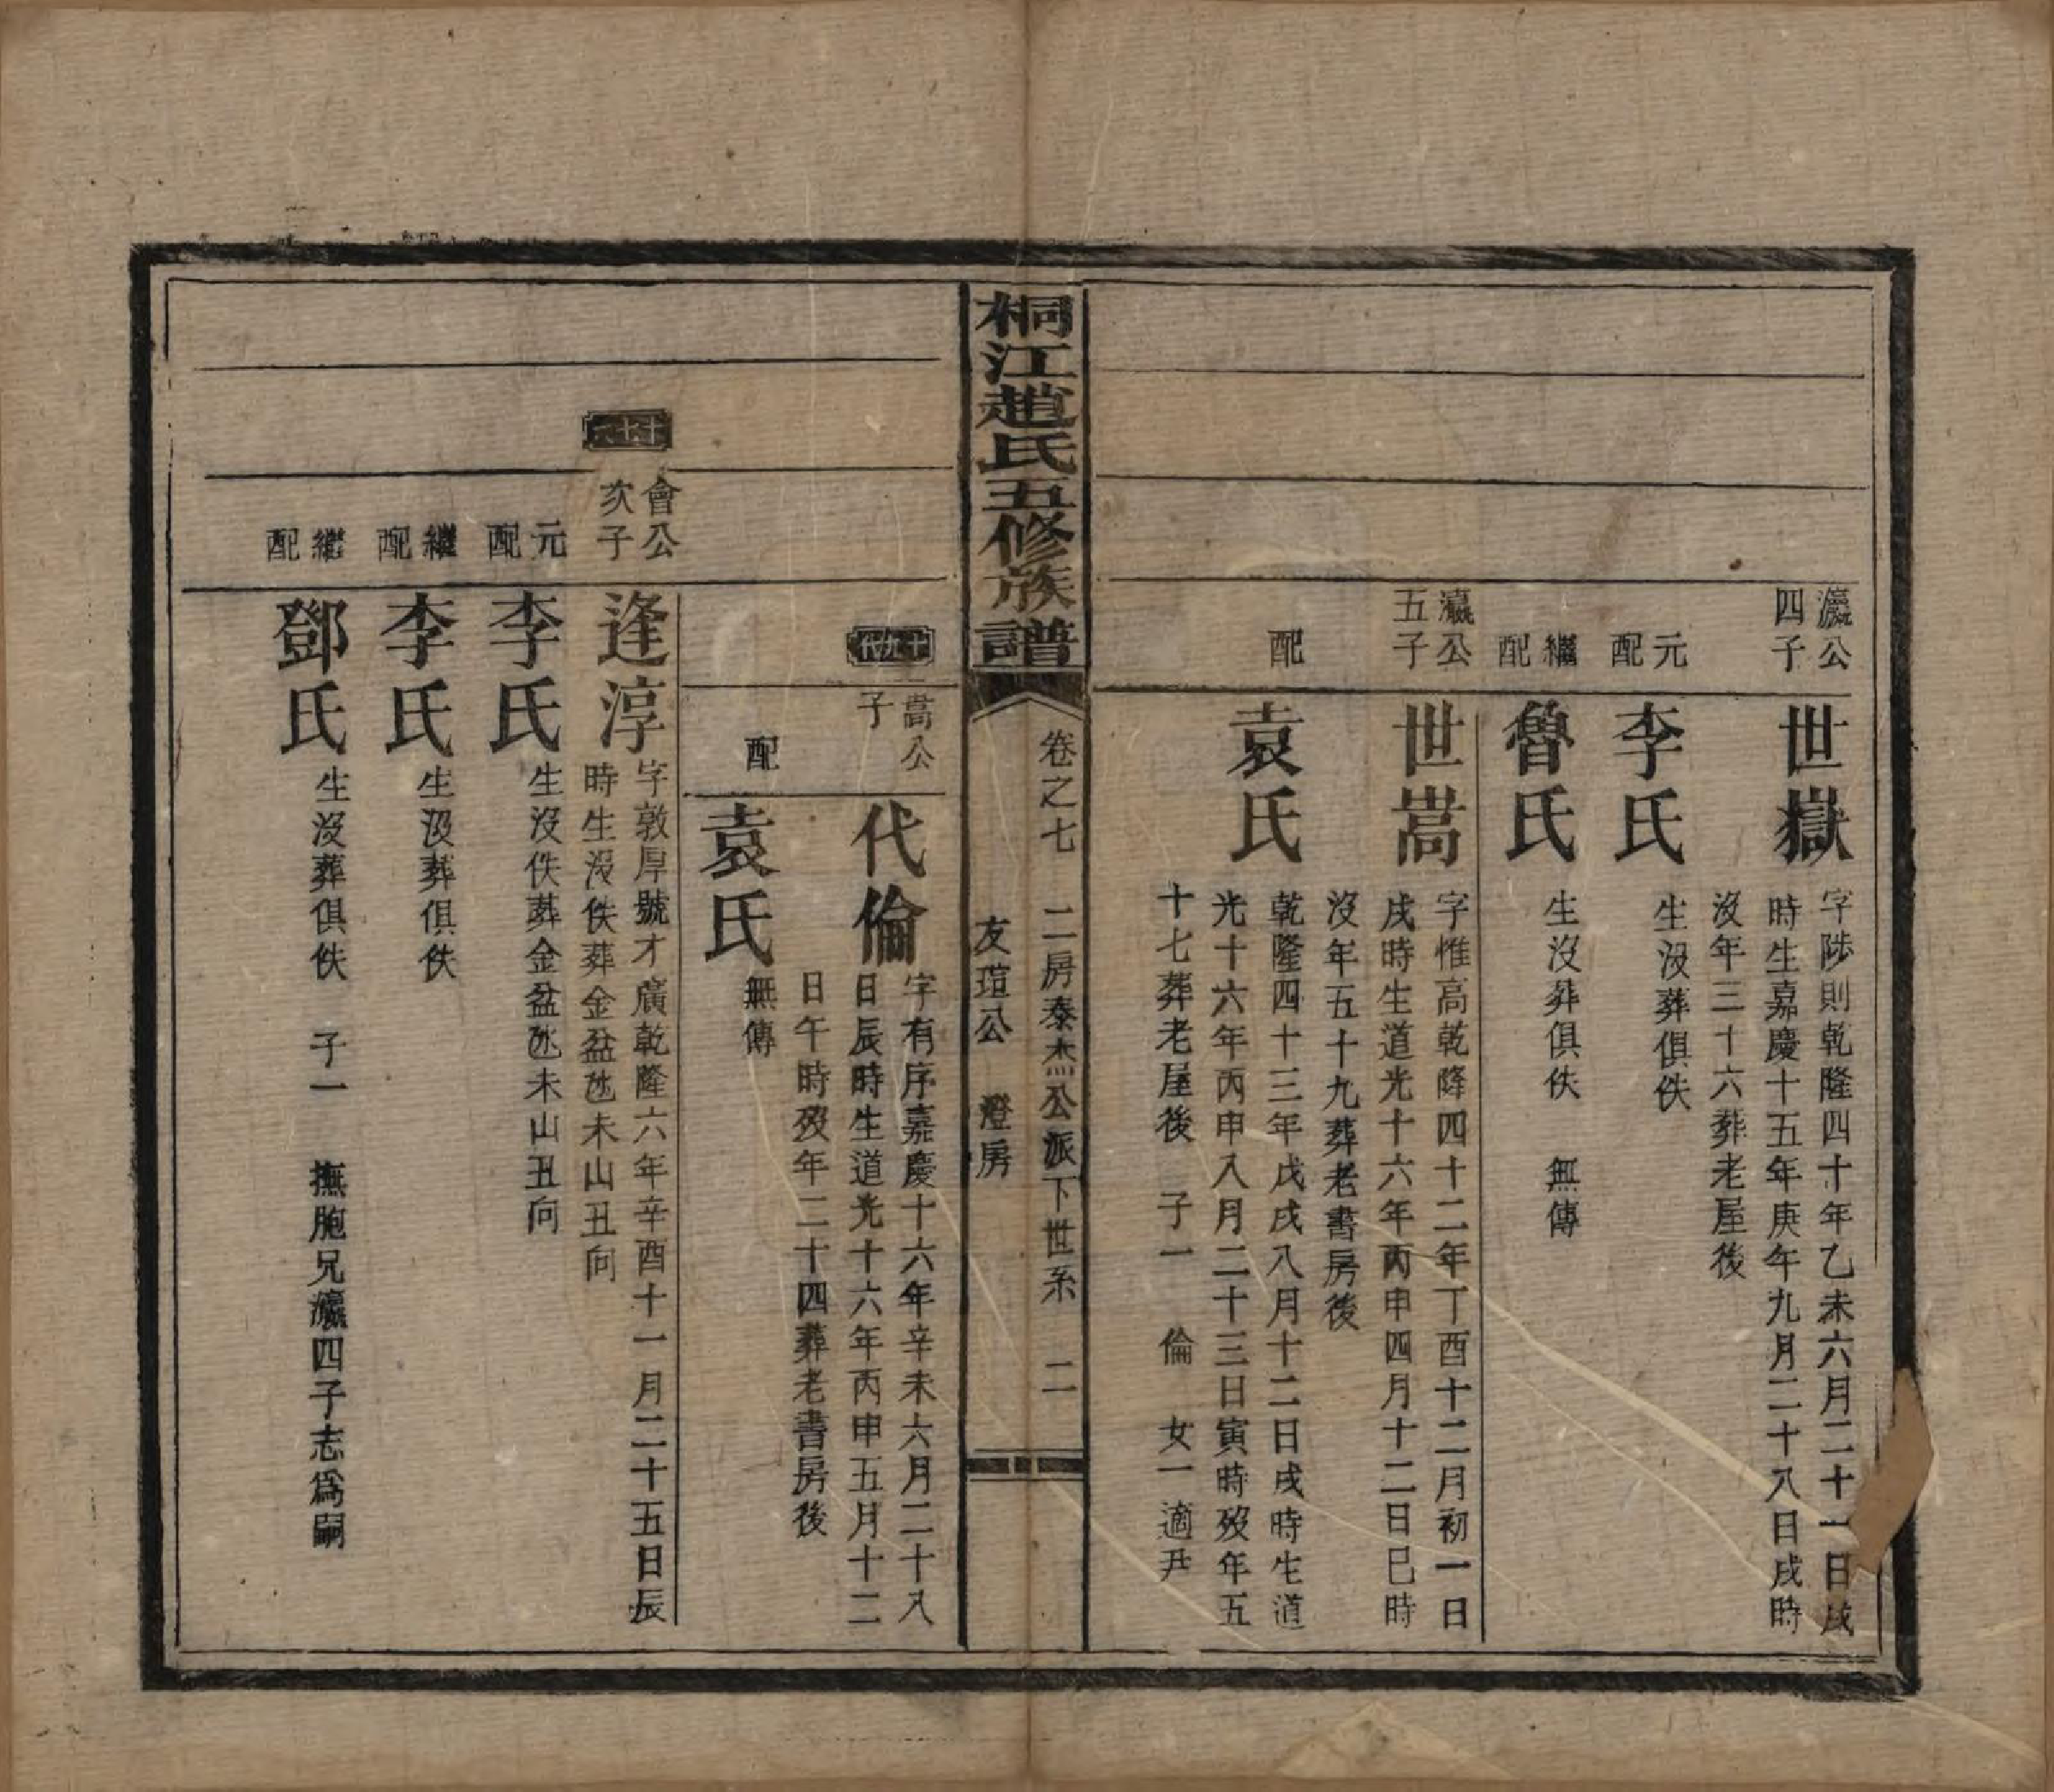 瀛公
四子
世嶽
字陟則乾隆四十年乙未六月二十一日戌
時生嘉慶十五年庚午九月二十八日戌時
沒年三十六葬老屋後
元
配
李氏
生沒葬俱佚
繼
配
魯氏
生沒葬俱佚 無傳
瀛公
五子
世嵩
字惟高乾隆四十二年丁酉十二月初一日
戌時生道光十六年丙申四月十二日巳時
沒年五十九葬老書房後
配
袁氏
乾隆四十三年戊戌八月十二日戌時生道
光十六年丙申八月二十三日寅時歿年五
十七葬老屋後 子一 倫 女一適尹
桐江趙氏五修族譜
卷之七 二房泰杰公派下世系 二
友瑄公 澄房
十九代
嵩公
子
代倫
字有序嘉慶十六年辛未六月二十八
日辰時生道光十六年丙申五月十二
日午時歿年二十四葬老書房後
配
袁氏
無傳
會公
次子
逢淳
字敦厚號才廣乾隆六年辛酉十一月二十五日辰
時生沒佚葬金盆氹未山丑向
元
配
李氏
生沒佚葬金盆氹未山丑向
繼
配
李氏
生沒葬俱佚
繼
配
鄧氏
生沒葬俱佚 子一 撫胞兄瀛四子志為嗣